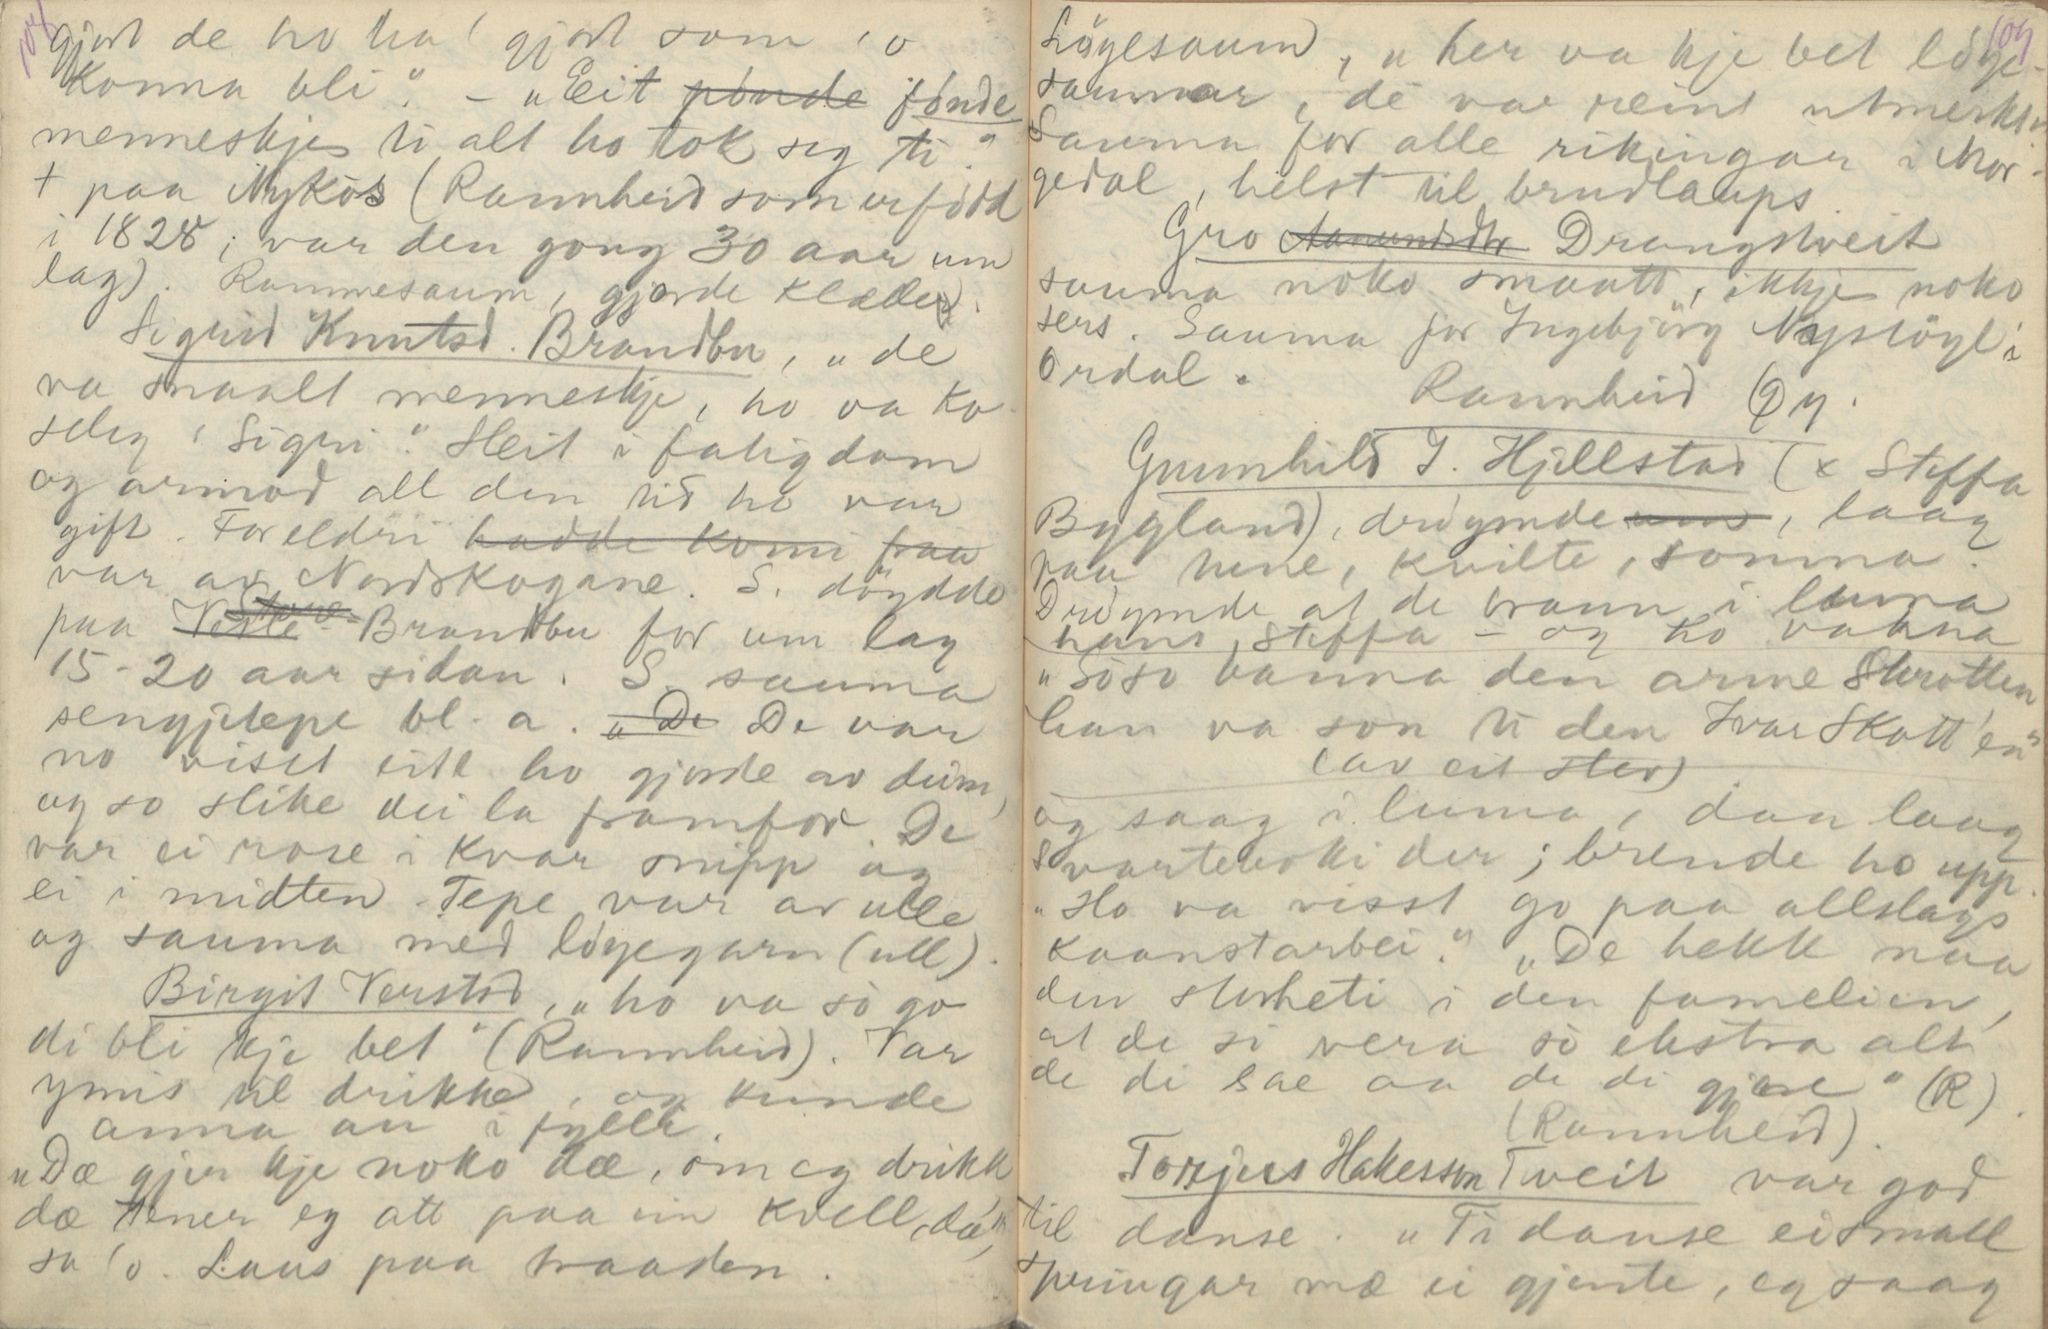 gjort de ho ha' gjort som 'o
konna bli." – „Eit pónde fónde
menneskje ti alt ho tok seg ti."
+ paa Nykós (Rannheid som er född
i 1828, var den gong 30 aar um
lag). Rammesaum, gjorde klæder.
Sigrid Knutsd. Brandbu, „de
va snaalt menneskje, ho va ko
seleg 'Sigri". Sleit i fatigdom
og armod all den tid ho var
gift. Foreldri hadde komi fraa
var av Nordskogane. S. döydde
paa Vesle Store- Brandbu for um lag
15-20 aar sidan. S. sauma
sengjetepe bl. a. „De De var
no visst eitt ho gjorde av deim,
og so slike dei la framfor. De
var ei rose i kvar snipp og
ei i midten. Tepe var av ulle
og sauma med lögegarn (ull).
Birgit Verstad, „ho va só go
di bli kje bet" (Rannheid). Var
ymis til drikke, og kunde
anna an i fylli.
„Dæ gjer kje noko dæ, om eg drikk
dæ tener eg att paa ein kvell, dá",
sa 'o. Laus paa traaden.
109
Lögesaum, „her va kje bet löge-
saumar, de var reint utmerkt".
Sauma for alle rikingar i Mor-
gedal, helst til brudlaups.
Gro Aanundsdtr Drangstveit
sauma noko smaatt, ikkje noko
sers. Sauma for Ingebjörg Nystögl i
Ordal.
Rannheid Öy.
Gunnhild I. Hjellstad (x Steffa
Bygland), dröymde um, laag
paa tune, kvilte, somna.
Dröymde at de brann i lumma
hans Steffa – og ho vakna
„Soso vanna den arme Skrotten
han va son ti den Ivar Skott'en"
(av eit stev)
og saag i lumma, daa laag
svarteboki der; brende ho upp.
„Ho va visst go paa allslags
kaanstarbei." „De hekk naa
den storheti i den familien,
at de si vera só ekstra alt
de di sae aa de di gjore" (R)
(Rannheid).
Torjus Hakesson Tweit var god
til danse. „Ti danse ei small
springar mæ ei gjente, eg saag